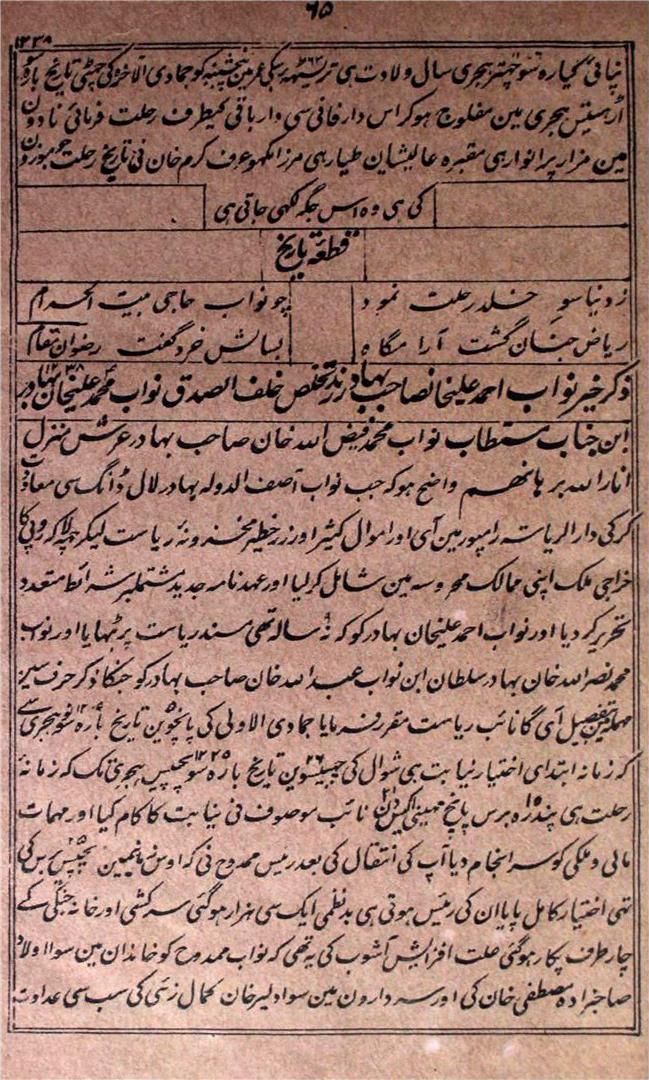 ۶۵
۱۲۳۸
پائی گیارہ سو چھتر ہجری سال ولادت ہی تریسٹھ کی عمر مین پنجشنبہ کو جمادی الآخر کی چھٹی تاریخ بارہ سو
اڑتیس ہجری مین مفلوج ہوکر اس دار فانی سی دار باقی کیطرف رحلت فرمائی نادون
مین مزار پر انوار ہی مقبرہ عالیشان طیار ہی مرزا عرف کرم خان نی تاریخ رحلت جو موزون
کی ہی وہ اس جگہ لکھی جاتی ہی
قطعۂ تاریخ
چو نواب حاجی بیت الحرام
ز دنیا سوِ خلد رحلت نمود
بسالش خرد گفت رضوان مقام
ریاض جنان گشت آرامگاہ
ذکر خیر نواب احمد علیخانصاحب بہادر رند تخلص خلف الصدق نواب محمد علیخان بہادر
ابن جناب مستطاب نواب محمد فیض اللہ خان صاحب بہادر عرش منزل
انار اللہ برہانھم واضح ہو کہ جب نواب آصف الدولہ بہادر لال ڈانگ سی معاودت
کرکی دار الریاستہ رامپور مین آئی اور اموال کثیر اور زر خطیر مخزونۂ ریاست لیکر چھہ لاکہ روپی کا
خراجی ملک اپنی ممالک محروسہ مین شامل کرلیا اور عہدنامہ جدید مشتملبر شرائط متعدد
تحریر کر دیا اور نواب احمد علیخان بہادر کو کہ ۹ نہ سالہ تھی مسند ریاست پر بٹھایا اور نواب
محمد نصر اللہ خان بہادر سلطان ابن نواب عبد اللہ خان صاحب بہادر کو جنکا ذکر حرف سین
مہملہ مین بتفصیل آئی گا نائب ریاست مقرر فرمایا جمادی الاولی کی پانچوین تاریخ بارہ سو ہجری سے
کہ زمانہ ابتدای اختیار نیابت ہی شوال کی چھبیسوین ۲۶ تاریخ بارہ سو پچیس ۱۲۲۵ ہجری تک کہ زمانۂ
رحلت ہی پندرہ ۱۵ برس پانچ مہینی اکیس ۲۱ دن نائب موصوف نی نیابت کا کام کیا اور مہمات
مالی و ملکی کو سر انجام دیا آپ کی انتقال کی بعد رئیس ممدوح نی کہ اوس زمین مین پچیس ۲۵ برس کی
تھی اختیار کامل پایا ان کی رئیس ہوتی ہی بد نظمی ایک سی ہزار ہوگئی سرکشی اور خانہ جنگی کے
چار طرف پکار ہوگئی علت افزایش آشوب کی یہ تھی کہ نواب ممدوح کو خاندان مین سوا اولاد
صاحبزادہ مصطفی خان کی اور سردارون مین سوا دلیر خان کمال زئی کی سب سی عداوت